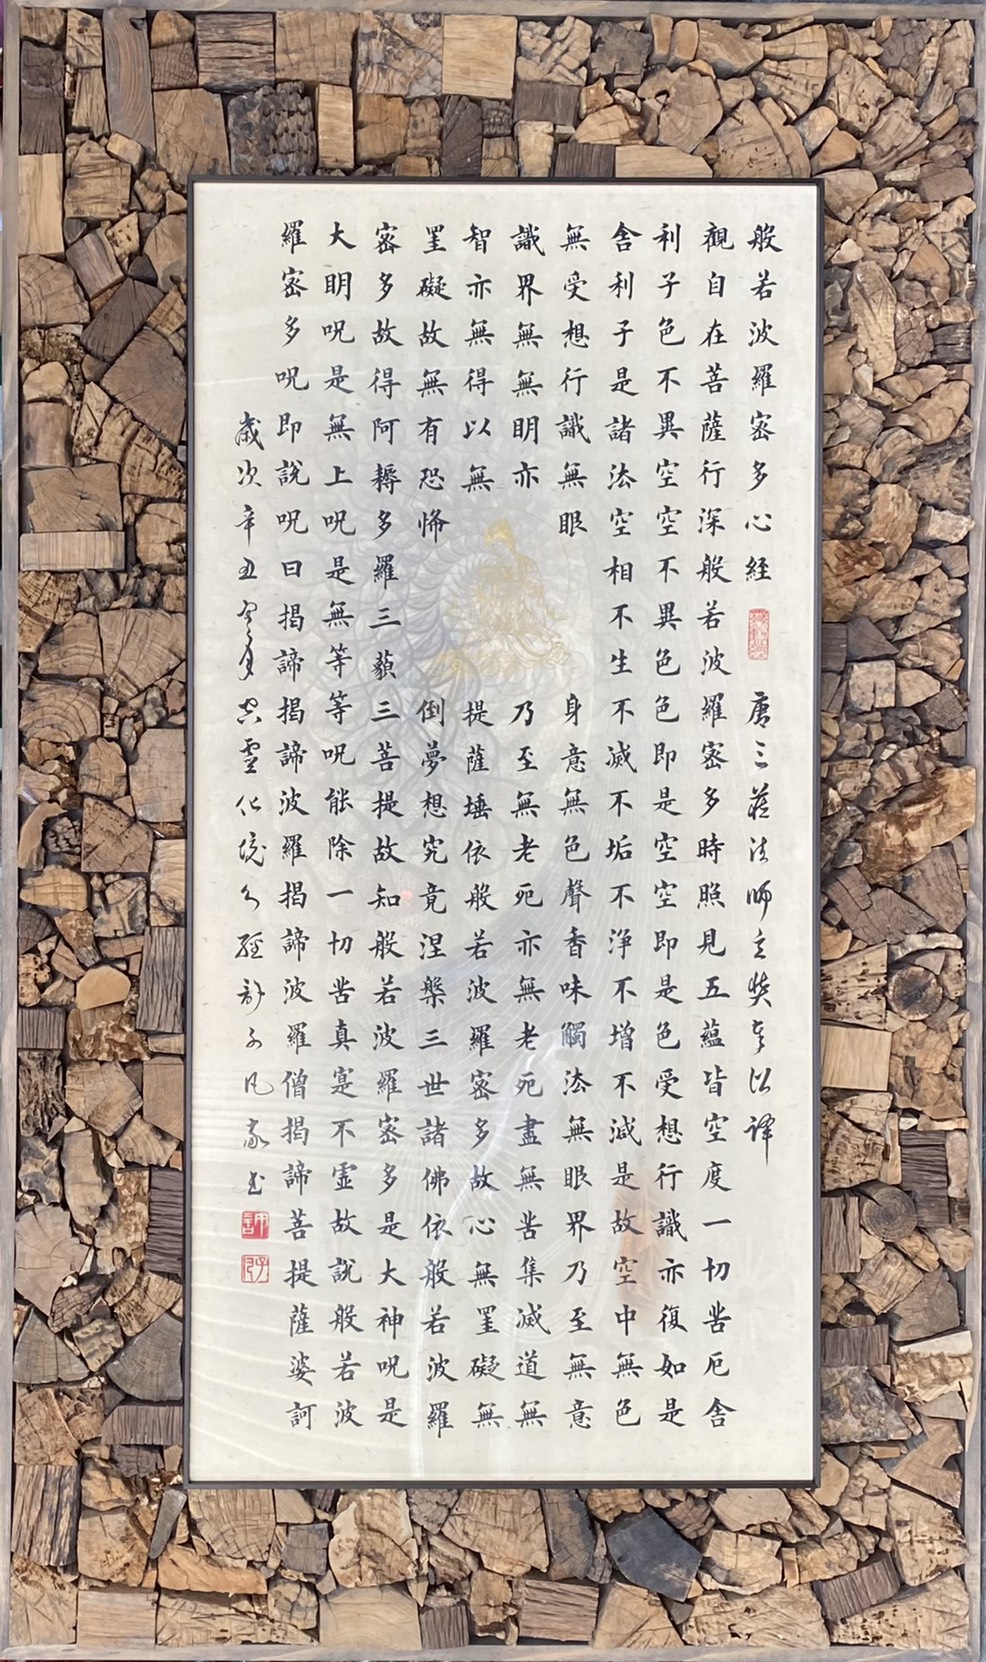 般若波羅密多心経 唐三藏法師玄奘奉詔譯
觀自在菩薩行深般若波羅密多時照見五蘊皆空度一切苦厄舍
利子色不異空空不異色色即是空空即是色受想行識亦復如是
舍利子是諸法空相不生不滅不垢不淨不增不減是故空中無色
無受想行識無眼 身意無色聲香味觸法無眼界乃至無意
識界無無明亦 乃至無老死亦無老死盡無苦集滅道無
智亦無得以無 提薩埵依般若波羅密多故心無罣礙無
罣礙故無有恐怖 倒夢想究竟涅槃三世諸佛依般若波羅
密多故得阿耨多羅三藐三菩提故知般若波羅密多是大神呪是
大明呪是無上呪是無等等呪能除一切苦真寔不虛故說般若波
羅密多呪即說呪曰揭諦揭諦波羅揭諦波羅僧揭諦菩提薩婆訶
歲次辛丑